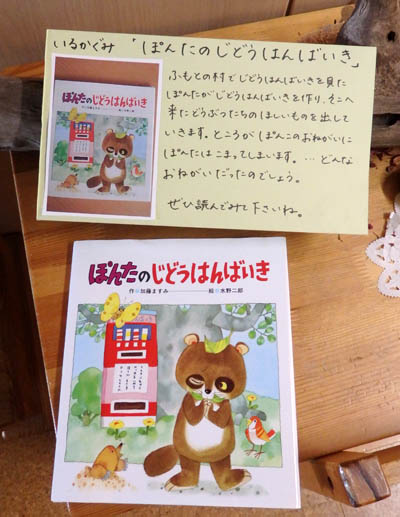 いるかぐみ 「ぽんたのじどうはんばいき」
ふもとの村でじどうはんばいきを見た
ぽんたがじどうはんばいきを作り、そこへ
来たどうぶつたちのほしいものを出して
いきます。ところがぽんこのおねがいに
ぽんたはこまってしまいます。…どんな
おねがいだったのでしょう。
ぜひ読んでみて下さいね。
ぽんたのじどうはんばいき
ぽんたのじどうはんばいき
作●加藤ますみ 絵●水野二郎